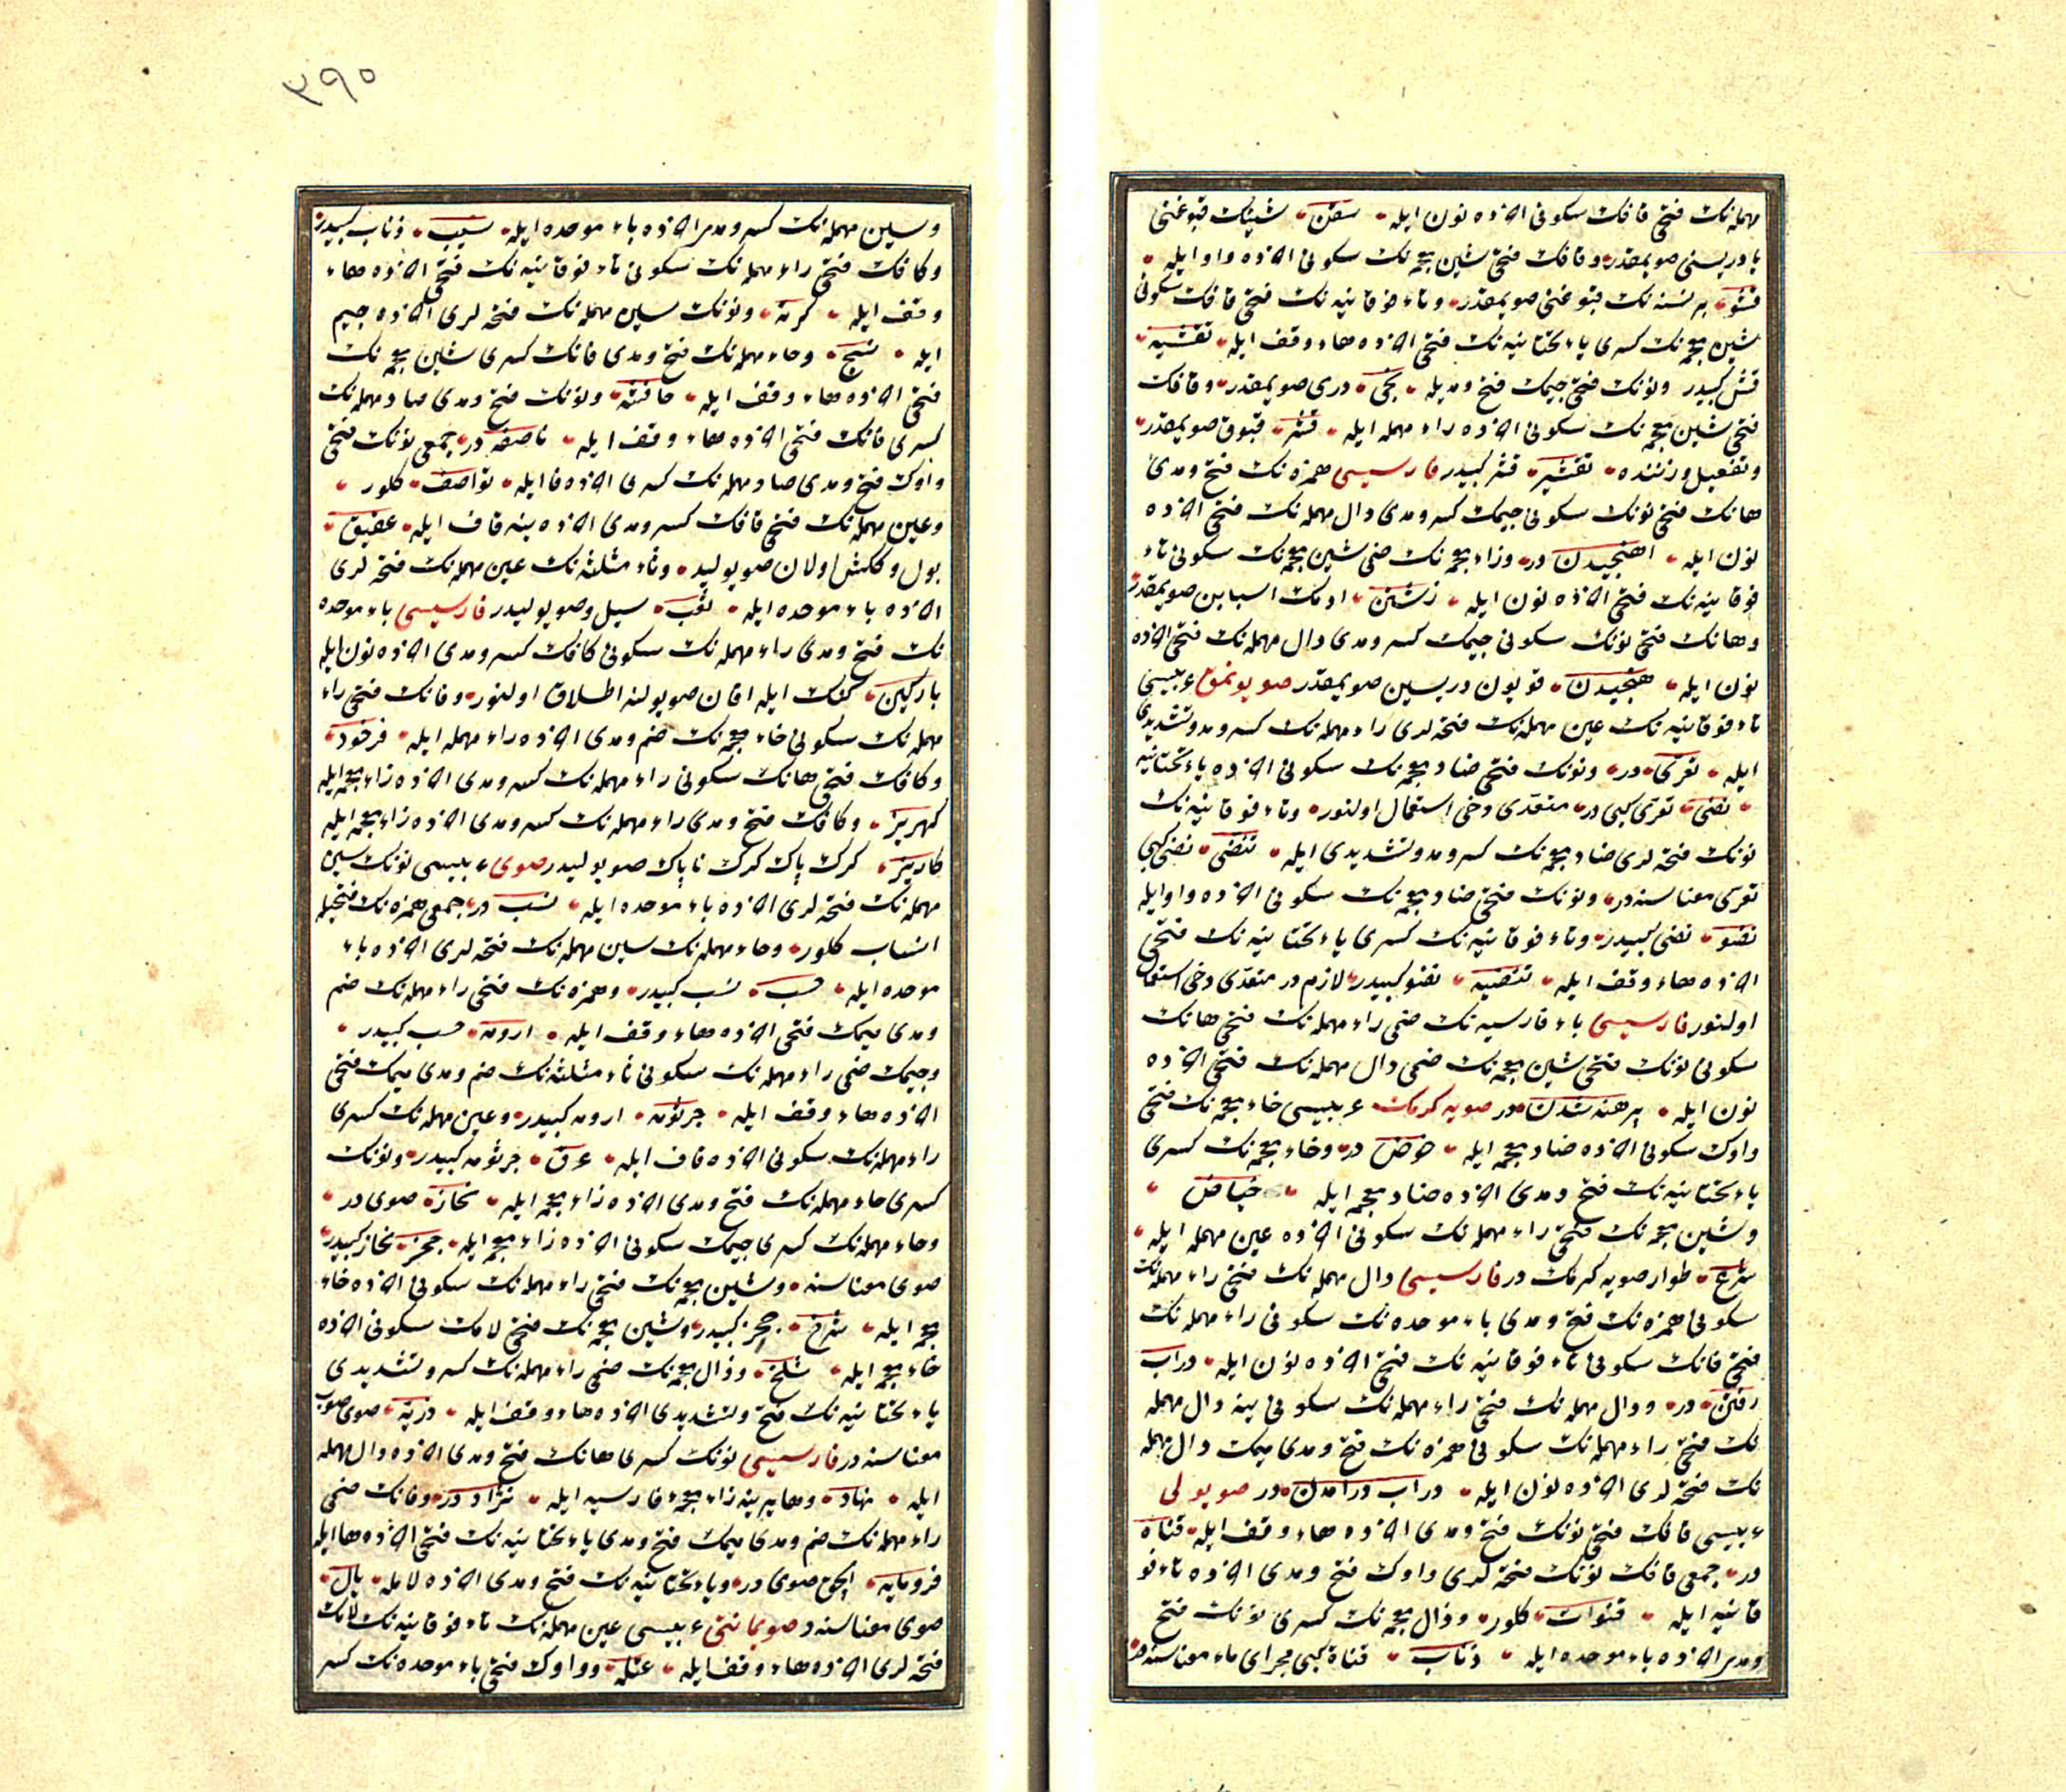 مهمله‌نك فتحى قافك سكونى اخرده نون ايله سقن شينك قبوغنى
يا دريسنى صويمقدر وقافك فتحى شين معجمه‌نك سكونى اخرده واو ايله
قشو بر نسنه‌نك قبوغنى صويمقدر وتاء فوقانيه‌نك فتحى قافك سكونى
شين معجمه‌نك كسرى ياء تحتانيه‌نك فتحى اخرده هاء وقف ايله تقشيه
قشر كبيدر ونونك فتحى جيمك فتح ومديله نجى درى صويمقدر وقافك
فتحى شين معجمه‌نك سكونى اخرده راء مهمله ايله قشر قبوق صويمقدر
وتفعيل وزننده تقشير قشر كبيدر فارسيسى همزه‌نك فتح ومدى
هانك فتحى نونك سكونى جيمك كسر ومدى دال مهمله‌نك فتحى اخرده
نون ايله اهنجيدن در وزاء معجمه‌نك ضمى شين معجمه‌نك سكونى تاء
فوقانيه‌نك فتحى اخرده نون ايله زشتن ادمك اسبابن صويمقدر
وهانك فتحى نونك سكونى جيمك كسر ومدى دال مهمله‌نك فتحى اخرده
نون ايله هنجيدن قويون دريسين صويمقدر صويونمق عربيسى
تاء فوقانيه‌نك عين مهمله‌نك فتحه لرى راء مهمله‌نك كسر ومد وتشديدى
ايله تعرى در ونونك فتحى ضاد معجمه‌نك سكونى اخرده ياء تحتانيه
نضى تعرى كبى در متعدى دخى استعمال اولنور وتاء فوقانيه‌نك
نونك فتحه لرى ضاد معجمه‌نك كسر ومد وتشديدى ايله تنضى نضى كبى
تعرى معناسنه در ونونك فتحى ضاد معجمه‌نك سكونى اخرده واو ايله
نضو نضى كبيدر وتاء فوقانيه‌نك كسرى ياء تحتانيه‌نك فتحى
اخرده هاء وقف ايله تنضيه نضو كبيدر لازم در متعدى دخى استعمال
اولنور فارسيسى باء فارسيه‌نك ضمى راء مهمله‌نك فتحى هانك
سكونى نونك فتحى شين معجمه‌نك ضمى دال مهمله‌نك فتحى اخرده
نون ايله برهنه شدن در صويه كرمك عربيسى خاء معجمه‌نك فتحى
واوك سكونى اخرده ضاد معجمه ايله خوض در وخاء معجمه‌نك كسرى
ياء تحتانيه‌نك فتح ومدى اخرده ضاد معجمه ايله خياض
وشين معجمه‌نك فتحى راء مهمله‌نك سكونى اخرده عين مهمله ايله
شرع طوار صويه كرمك در فارسيسى دال مهمله‌نك فتحى راء مهمله‌نك
سكونى همزه‌نك فتح ومدى باء موحده‌نك سكونى راء مهمله‌نك
فتحى فانك سكونى تاء فوقانيه‌نك فتحى اخرده نون ايله دراب
رفتن در ودال مهمله‌نك فتحى راء مهمله‌نك سكونى ينه دال مهمله
نك فتحى راء مهمله‌نك سكونى همزه‌نك فتح ومدى ميمك دال مهمله
نك فتحه لرى اخرده نون ايله دراب درامدن در صو يولى
عربيسى قافك فتحى نونك فتح ومدى اخرده هاء وقف ايله قناة
در جمعى قافك نونك فتحه لرى واوك فتح ومدى اخرده تاء فو
قانيه ايله قنوات كلور وذال معجمه‌نك كسرى نونك فتح
ومدى اخرده باء موحده ايله ذناب قناة كبى مجراى ماء معناسنه در
٣٩٠
وسين مهمله‌نك كسر ومدى اخرده باء موحده ايله سيب ذناب كبيدر
وكافك فتحى راء مهمله‌نك سكونى تاء فوقانيه‌نك فتحى اخرده هاء
وقف ايله كرته ونونك سين مهمله‌نك فتحه لرى اخرده جيم
ايله نسج وحاء مهمله‌نك فتح ومدى فانك كسرى شين معجمه‌نك
فتحى اخرده هاء وقف ايله حافشه ونونك فتح ومدى صاد مهمله‌نك
كسرى فانك فتحى اخرده هاء وقف ايله ناصفه در جمعى نونك فتحى
واوك فتح ومدى صاد مهمله‌نك كسرى اخرده فا ايله نواصف كلور
وعين مهمله‌نك فتحى قافك كسر ومدى اخرده ينه قاف ايله عقيق
بول وككش اولان صو يوليدر وثاء مثلثه‌نك عين مهمله‌نك فتحه لرى
اخرده باء موحده ايله ثعب سيل وصو يوليدر فارسيسى باء موحده
نك فتح ومدى راء مهمله‌نك سكونى كافك كسر ومدى اخرده نون ايله
باركين كنك ايله اقان صو يولنه اطلاق اولنور وفانك فتحى راء
مهمله‌نك سكونى خاء معجمه‌نك ضم ومدى اخرده راء مهمله ايله فرخور
وكافك فتحى هانك سكونى راء مهمله‌نك كسر ومدى اخرده زاء معجمه ايله
كهريز وكافك فتح ومدى راء مهمله‌نك كسر ومدى اخرده زاء معجمه ايله
كاريز كرك پاك كرك ناپاك صو يوليدر صوى عربيسى نونك سين
مهمله‌نك فتحه لرى اخرده باء موحده ايله نسب در جمعى همزه‌نك فتحيله
انساب كلور وحاء مهمله‌نك سين مهمله‌نك فتحه لرى اخرده باء
موحده ايله حسب نسب كبيدر وهمزه‌نك فتحى راء مهمله‌نك ضم
ومدى ميمك فتحى اخرده هاء وقف ايله ارومه حسب كبيدر
وجيمك ضمى راء مهمله‌نك سكونى ثاء مثلثه‌نك ضم ومدى ميمك فتحى
اخرده هاء وقف ايله جرثومه ارومه كبيدر وعين مهمله‌نك كسرى
راء مهمله‌نك سكونى اخرده قاف ايله عرق جرثومه كبيدر ونونك
كسرى حاء مهمله‌نك فتح ومدى اخرده زاء معجمه ايله نحاز صوى در
وحاء مهمله‌نك كسرى جيمك سكونى اخرده زاء معجمه ايله حجز نحاز كبيدر
صوى معناسنه وشين معجمه‌نك فتحى راء مهمله‌نك سكونى اخرده خاء
معجمه ايله شرخ حجز كبيدر وشين معجمه‌نك فتحى لامك سكونى اخرده
خاء معجمه ايله شلخ وذال معجمه‌نك ضمى راء مهمله‌نك كسر وتشديدى
ياء تحتانيه‌نك فتح وتشديدى اخرده هاء وقف ايله ذريه صوى صوب
معناسنه در فارسيسى نونك كسرى هانك فتح ومدى اخرده دال مهمله
ايله نهاد وها يرينه زاء معجمهء فارسيه ايله نژاد در وفانك ضمى
راء مهمله‌نك ضم ومدى ميمك فتح ومدى ياء تحتانيه‌نك فتحى اخرده ها ايله
فرومايه الچق صوى در وياء تحتانيه‌نك فتح ومدى اخرده لامله يال
صوى معناسنه در صويمانتى عربيسى عين مهمله‌نك تاء فوقانيه‌نك لامك
فتحه لرى اخرده هاء وقف ايله عتله وواوك فتحى باء موحده‌نك كسر